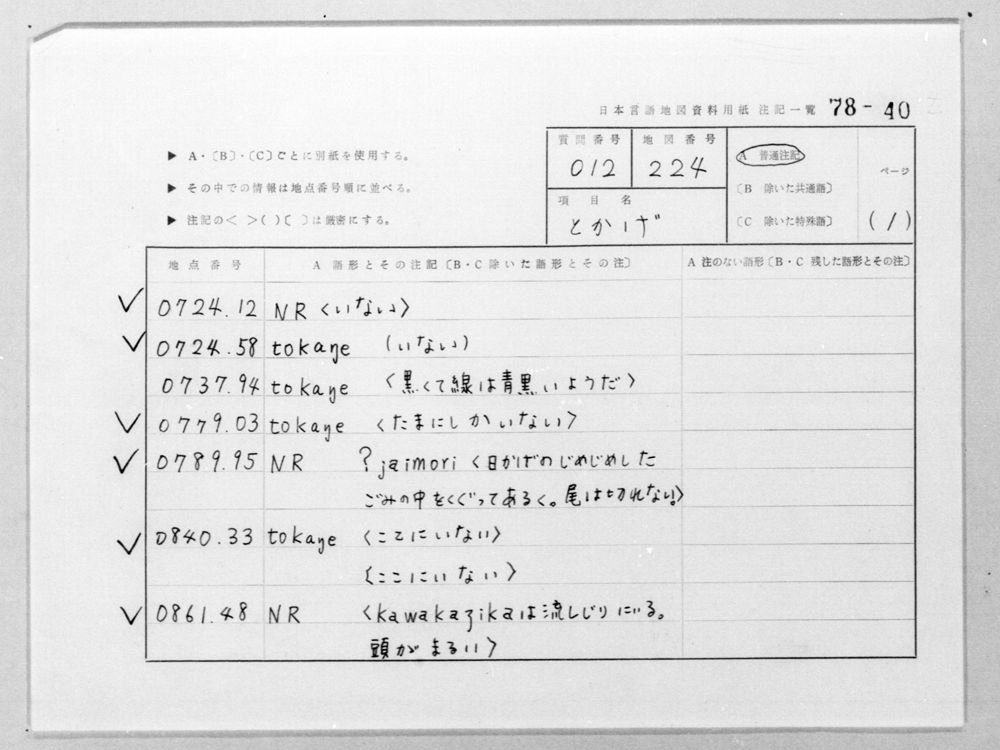 日本言語地図資料用紙 注記一覧 78-40
▶ A・〔B〕・〔C〕ごとに別紙を使用する。
▶ その中での情報は地点番号順に並べる。
▶ 注記の< >( )〔 〕は厳密にする。
質問番号 地図番号
012 224
項目名
とかげ
A 普通注記
〔B 除いた共通語〕
〔C 除いた特殊語〕
ページ
(1)
地点番号 A 語形とその注記〔B・C 除いた語形とその注〕 A 注のない語形〔B・C 残した語形とその注〕
✓ 0724.12 NR 〈いない〉
✓ 0724.58 tokaŋe (いない)
0737.94 tokaŋe 〈黒くて線は青黒いようだ〉
✓ 0779.03 tokaŋe 〈たまにしかいない〉
✓ 0789.95 NR ?jaimori〈日かげのじめじめした
ごみの中をくぐってあるく。尾は切れない〉
✓ 0840.33 tokaŋe 〈ここにいない〉
〈ここにいない〉
✓ 0861.48 NR 〈kawakaʒikaは流しじりにいる。
頭がまるい〉